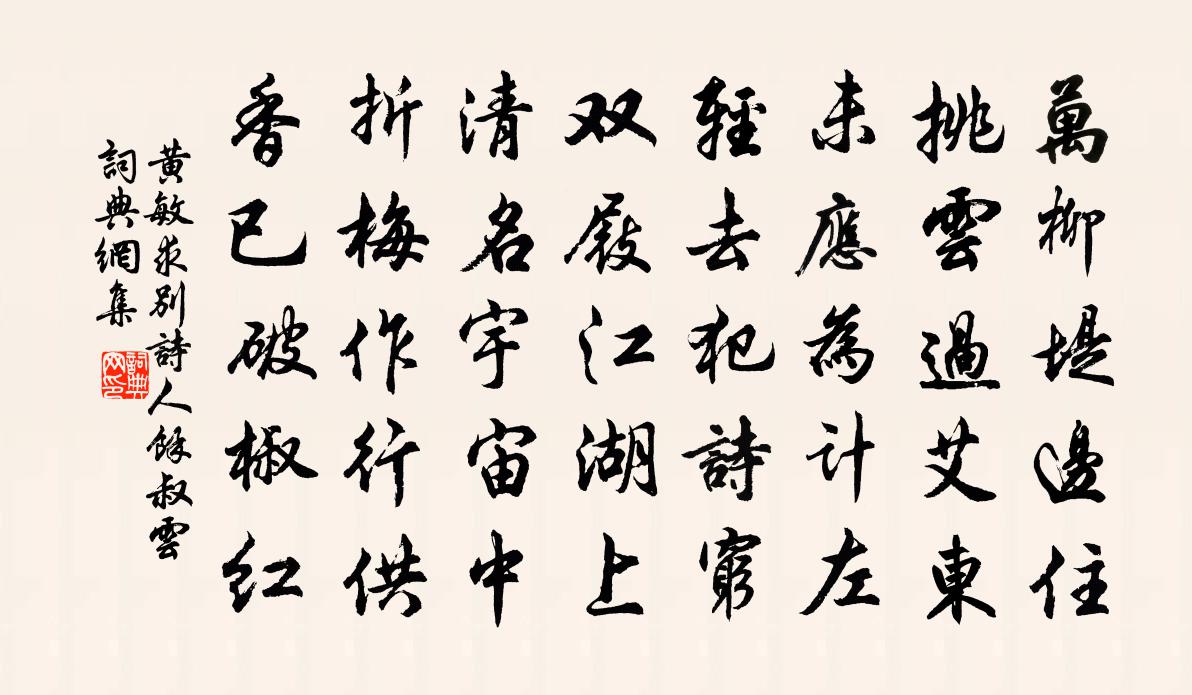 萬柳堤邊住
挑雲過艾東
未應為計左
輕去犯詩窮
双屐江湖上
清名宇宙中
折梅作行供
香已破椒红
黃敏求别詩人餘叔雲
詞典網集
詞典网印